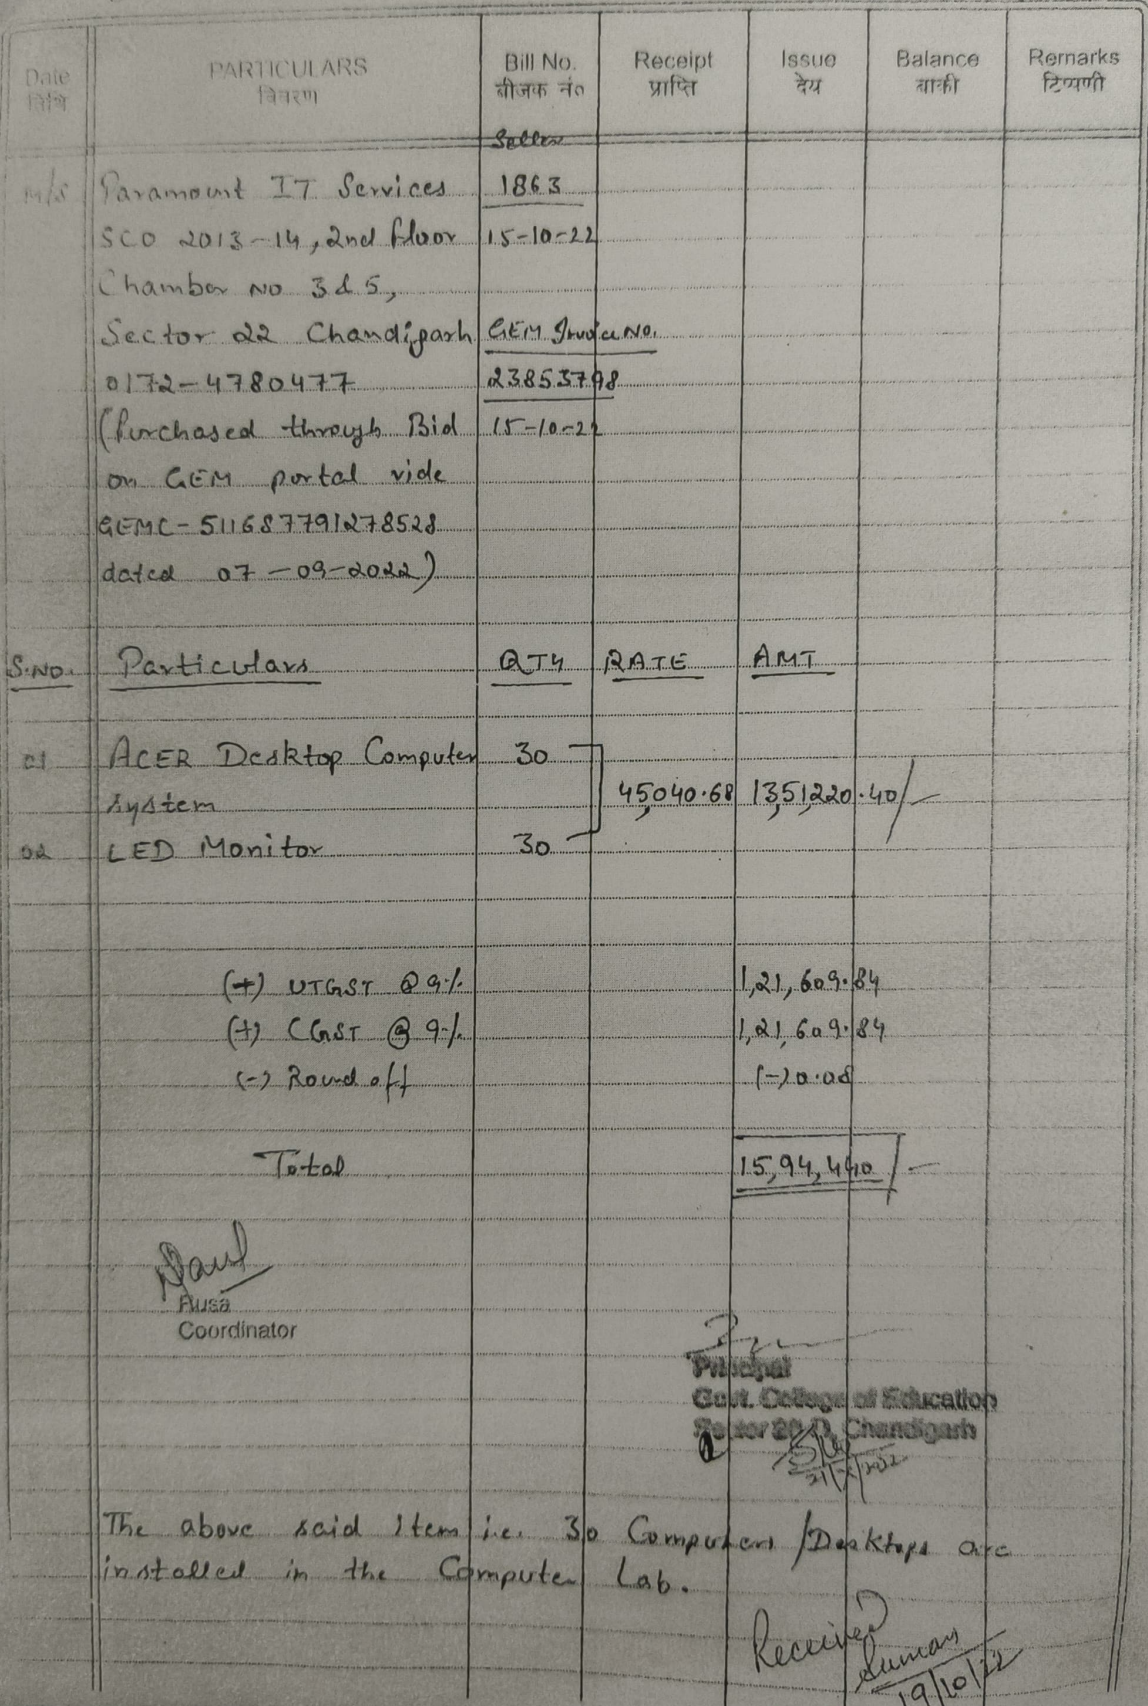 Date PARTICULARS Bill No. Receipt Issue Balance Remarks
तिथि विवरण बीजक नं० प्राप्ति देय बाकी टिप्पणी
Seller
M/S Paramount IT Services 1863
SCO 2013-14, 2nd floor 15-10-22
Chamber NO 3&5,
Sector 22 Chandigarh GEM Invoice NO.
0172-4780477 23853798
(Purchased through Bid 15-10-22
on GEM portal vide
GEMC-511687791278528
dated 07-09-2022)
S.NO. Particulars QTY RATE AMT
01 ACER Desktop Computer 30
system 45,040.68 13,51,220.40/-
02 LED Monitor 30
(+) UTGST @ 9% 1,21,609.84
(+) CGST @ 9% 1,21,609.84
(-) Round off (-) 0.08
Total 15,94,440/-
Rusa
Coordinator
Principal
Govt. College of Education
Sector 20 D, Chandigarh
The above said item i.e. 30 Computers/Desktops are
installed in the Computer Lab.
Received
Suman
19/10/22